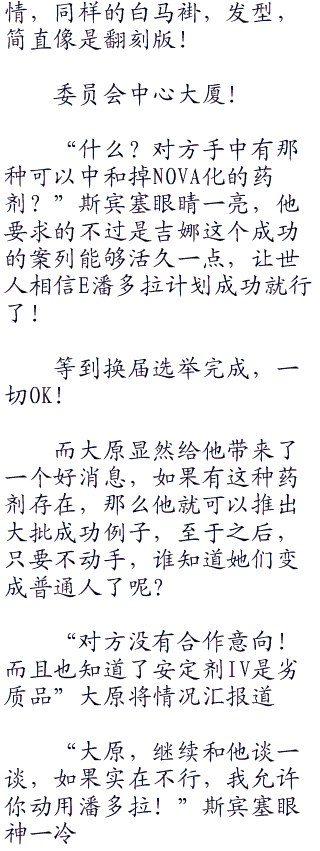 情，同样的白马褂，发型，
简直像是翻刻版！
委员会中心大厦！
“什么？对方手中有那
种可以中和掉NOVA化的药
剂？”斯宾塞眼睛一亮，他
要求的不过是吉娜这个成功
的案列能够活久一点，让世
人相信E潘多拉计划成功就行
了！
等到换届选举完成，一
切OK！
而大原显然给他带来了
一个好消息，如果有这种药
剂存在，那么他就可以推出
大批成功例子，至于之后，
只要不动手，谁知道她们变
成普通人了呢？
“对方没有合作意向！
而且也知道了安定剂IV是劣
质品”大原将情况汇报道
“大原，继续和他谈一
谈，如果实在不行，我允许
你动用潘多拉！”斯宾塞眼
神一冷